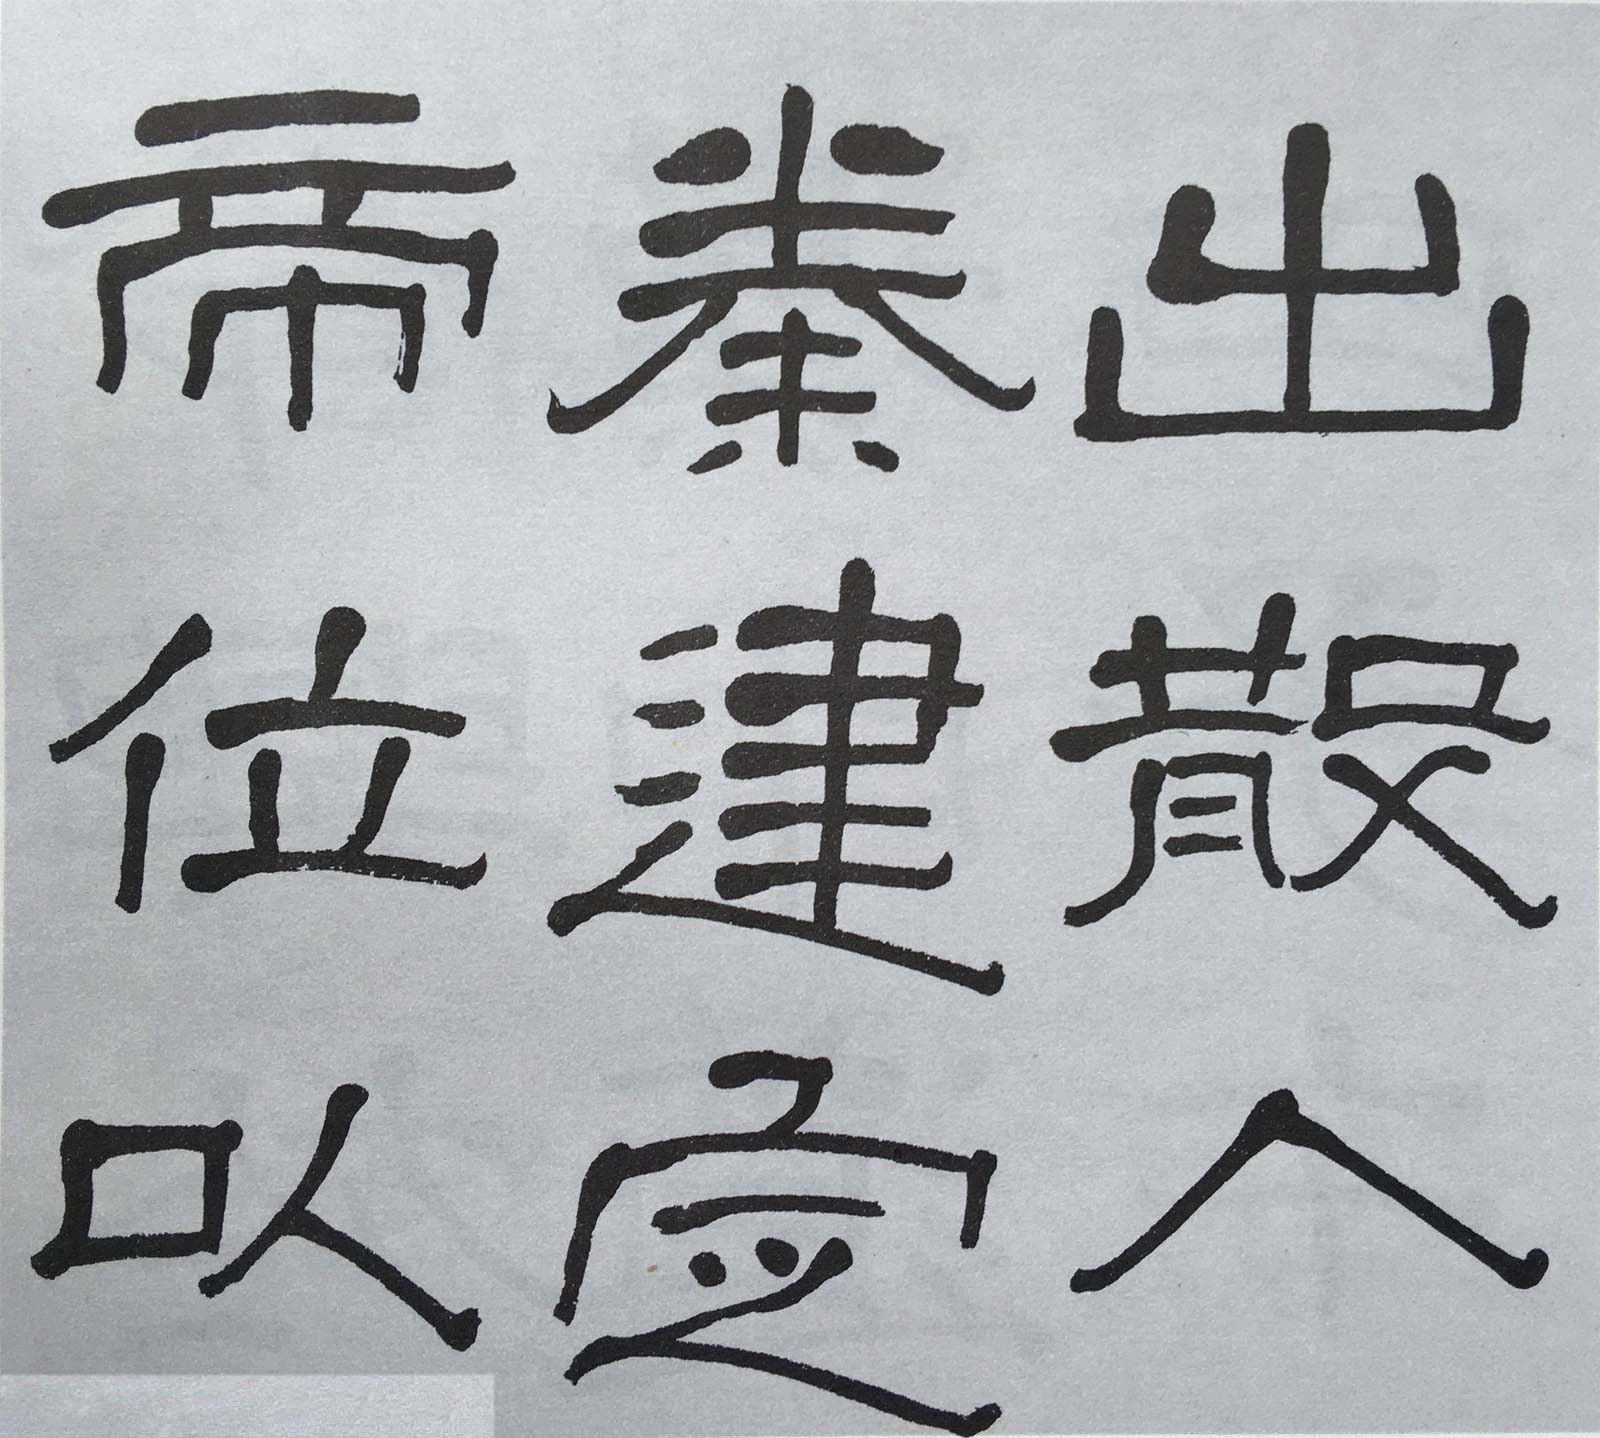 出散入
秦建定
帝位以